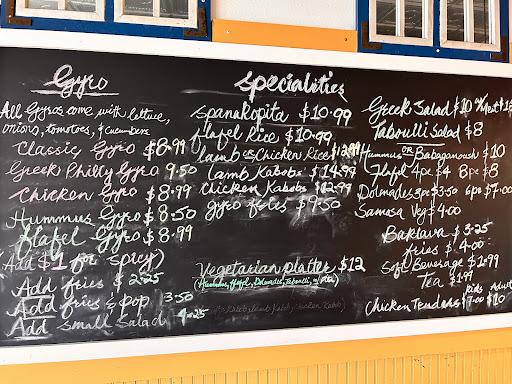 Gyro
All Gyros come with lettuce,
onions, tomatoes, & cucumbers
Classic Gyro $8.99
Greek Philly Gyro 9.50
Chicken Gyro $8.99
Hummus Gyro $8.50
Flafel Gyro $8.99
(Add $1 for spicy)
Add fries $2.25
Add fries & pop 3.50
Add small Salad 4.25
Specialities
Spanakopita $10.99
flafel Rice $10.99
lamb OR Chicken Rice $12.99
lamb Kabobs $14.99
Chicken Kabobs $12.99
gyro fries $9.50
Vegetarian platter $12
(Hummus, flafel, Dolmades, Tabouli,
Greek Salad $10
Taboulli Salad $8
Hummus OR Babaganoush $10
Flafl 4pc $4 8pc $8
Dolmades 3pc $3.50 6pc $7.00
Samosa Veg $4.00
Baklava $3.25
fries $4.00
Soft Beverage $1.99
Tea $1.99
Kids Adult
Chicken Tenders $7.00 $10